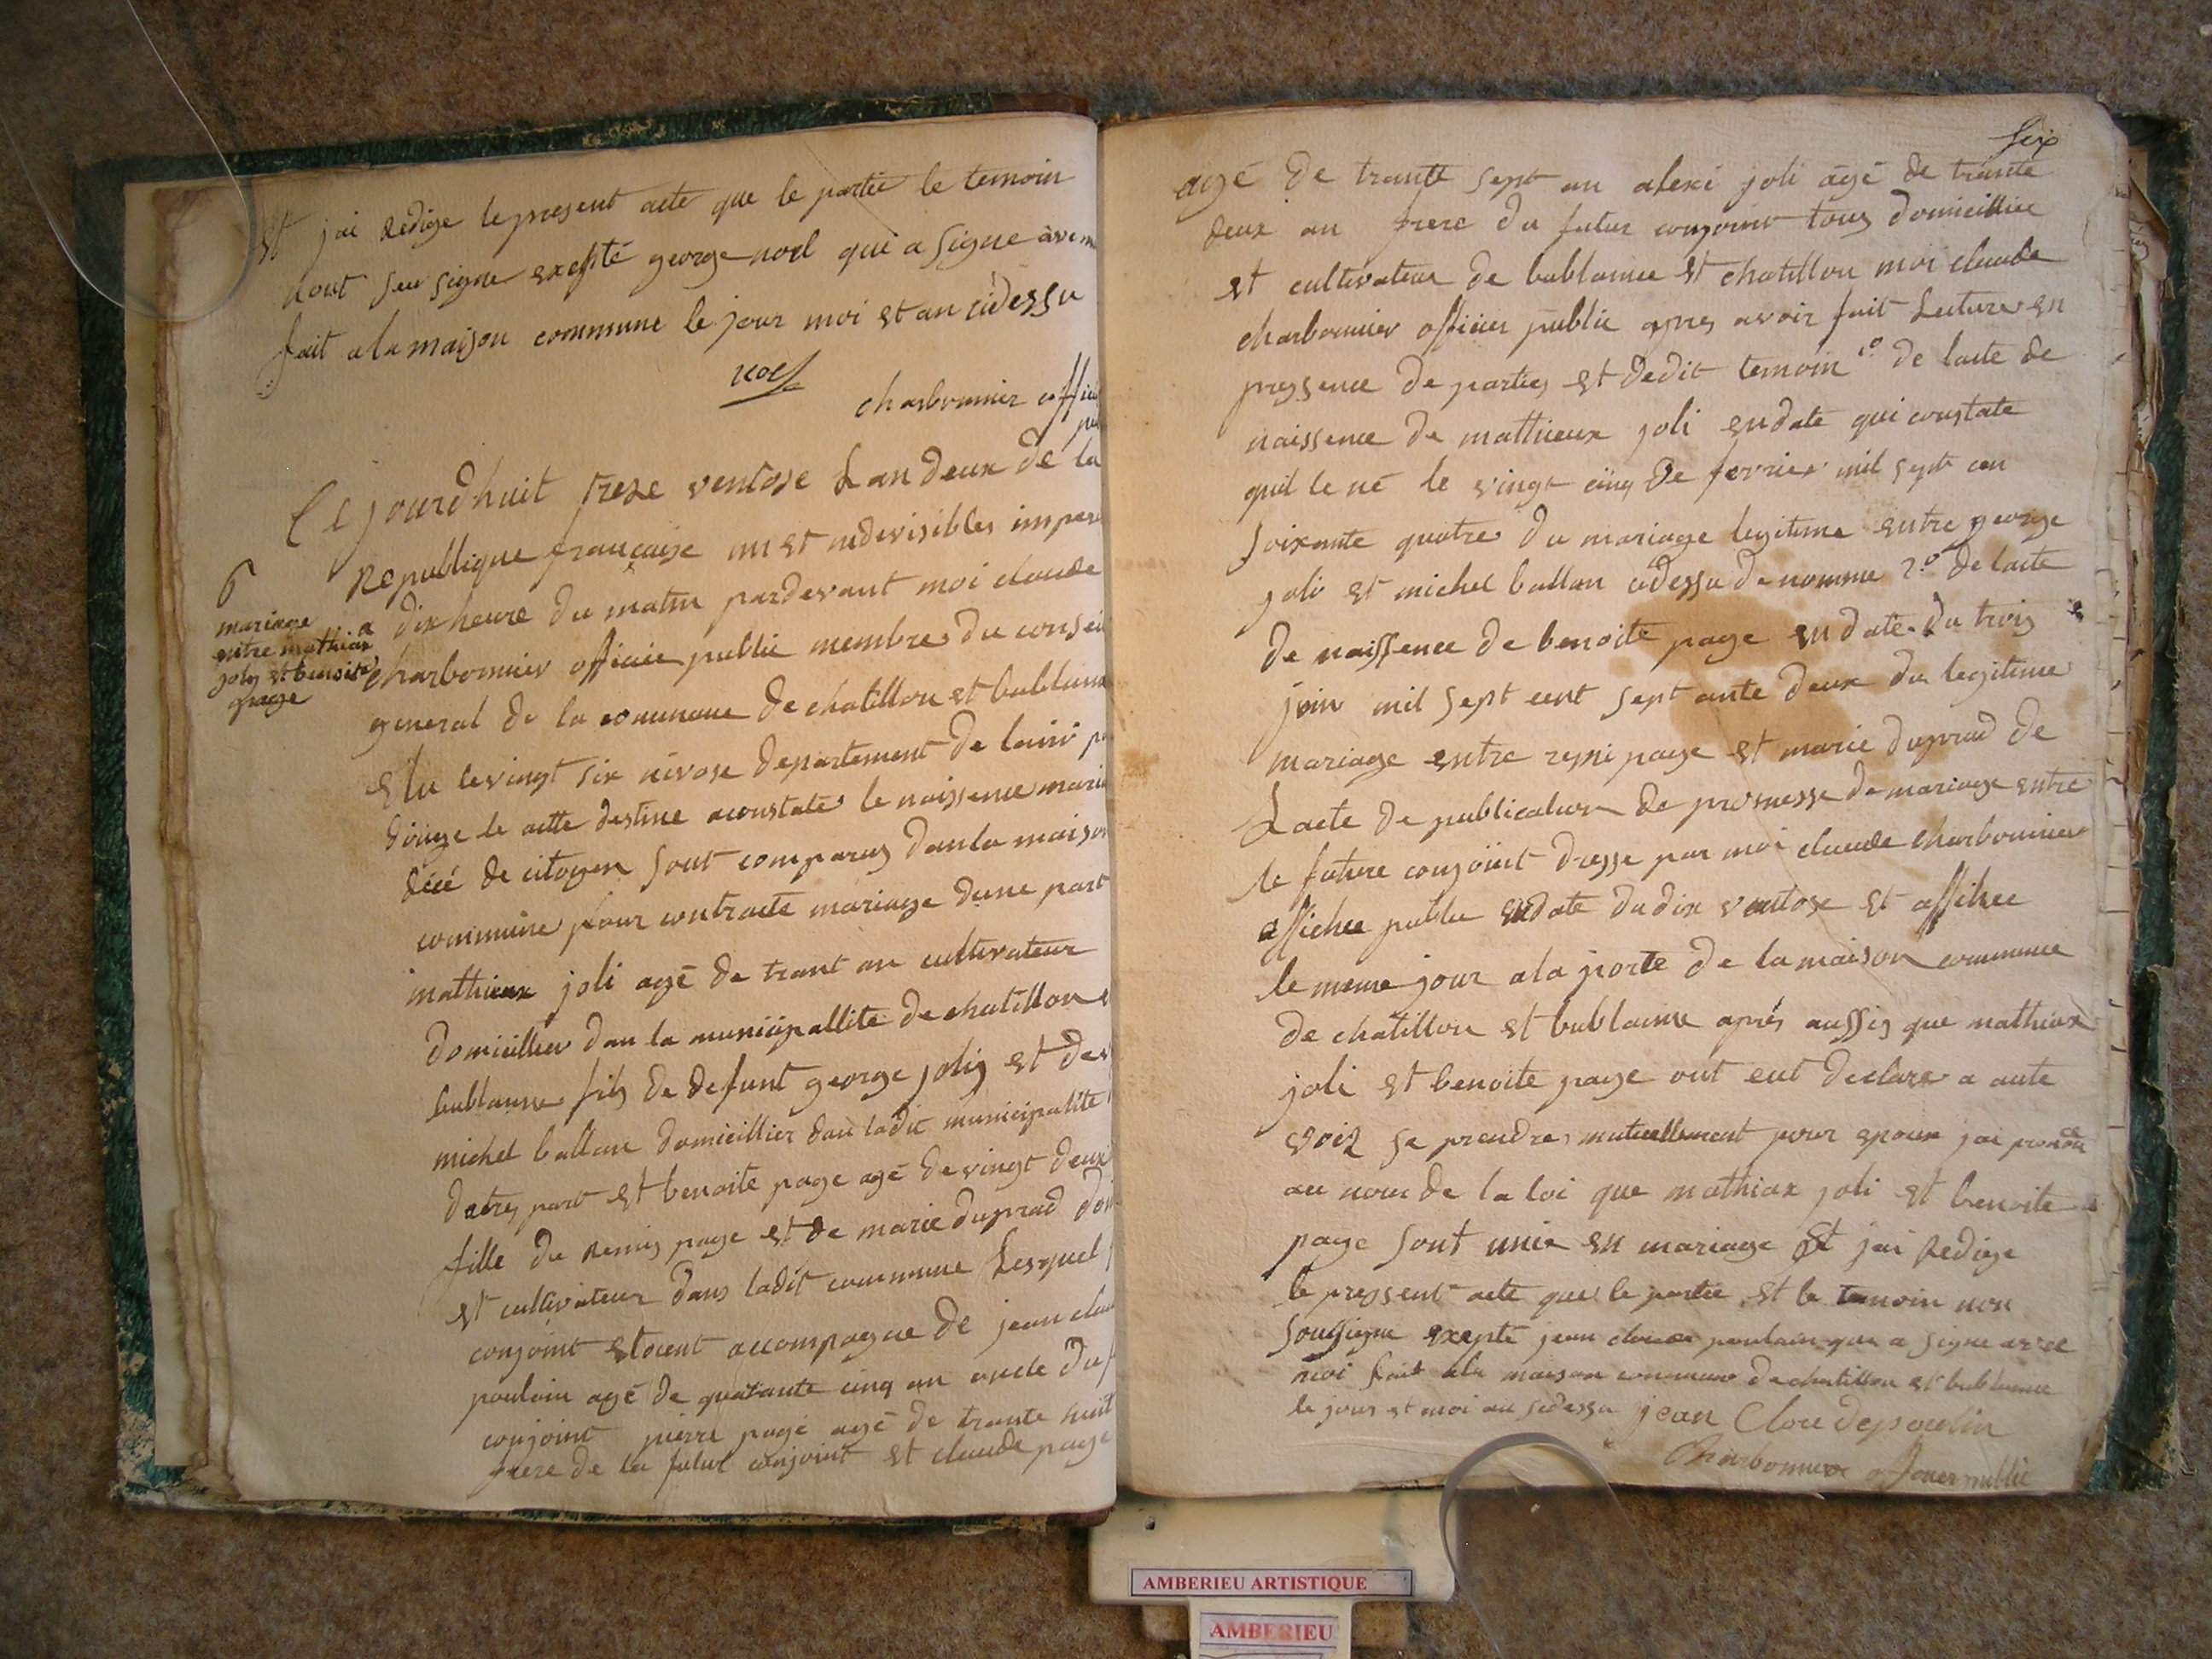 Et jai redige le present acte que le partie le temoin
nont seu signe exepté george noel qui a signe avec
fait a la maison commune le jour moi et an cidessu
noel
charbonnier offici
pu
Ce jourdhuit treze ventose Lan deux de la
Republique française un et indevisibles imper
6
mariage
entre mathiax
joly et benoite
page
a dix heure du matin pardevant moi claude
charbonnier officiée public membre du consei
general de la commune de chatillon et bublane
Elu le vingt six nivose departement de lain p
dirige le acte destine a constate le naissence maria
décé de citoyen sont comparus dan la maison
commune pour contracte mariage dune part
mathieux joli agé de trant an cultivateur
domicillier dan la municipallite de chatillon e
bublanne fils de defunt george joli et de
michel ballan domicillier dan ladit municipalite
datres part et benoite page agé de vingt deux
fille du remis page et de marie duprad dom
et cultivateur dans ladit commune Lesquel
conjoint etoient accompagne de jean clau
poulain agé de quatante cinq an oncle du f
conjoint pierre page agé de trante huit
frere de la futur conjoint et claude page
Six
agé de trante sept an alexi joli âgé de trante
deux an frere du futur conjoint tous domicillie
et cultivateur de bublanne et chatillon moi claude
charbonnier officier public apres avoir fait Lecture en
pressence de parties et dedit temoin 1º de lacte de
naissence de mathieux joli en date qui constate
quil le né le vingt cinq de fevrier mil sept cen
soixante quatre du mariage legitime entre george
joli et michel ballan cidessu de nomme 2.º de lacte
de naissence de benoite page en date du trois
juin mil sept cent sept ante deux du legitime
mariage entre remi page et marie duprad de
Lacte de publication de promesse de mariage entre
le future conjoint dresse par moi claude charbonnier
affichee public en date du dix ventose et affichee
le meme jour a la porte de la maison commune
de châtillon et bublanne aprés aussis que mathiax
joli et benoite page ont eut declare a aute
voiz se prendre mutuellement pour epoux jai prononce
au nom de la loi que mathiax joli et benoite
page sont unie en mariage et jai redige
le pressent acte que le partie et le temoin non
soussigne exepte jean claude poulain que a signe avec
moi fait a la maison commune de chatillon et bublanne
le jour et moi au sidessu jean Clou depoulin
Charbonnier officier public
AMBERIEU ARTISTIQUE
AMBERIEU